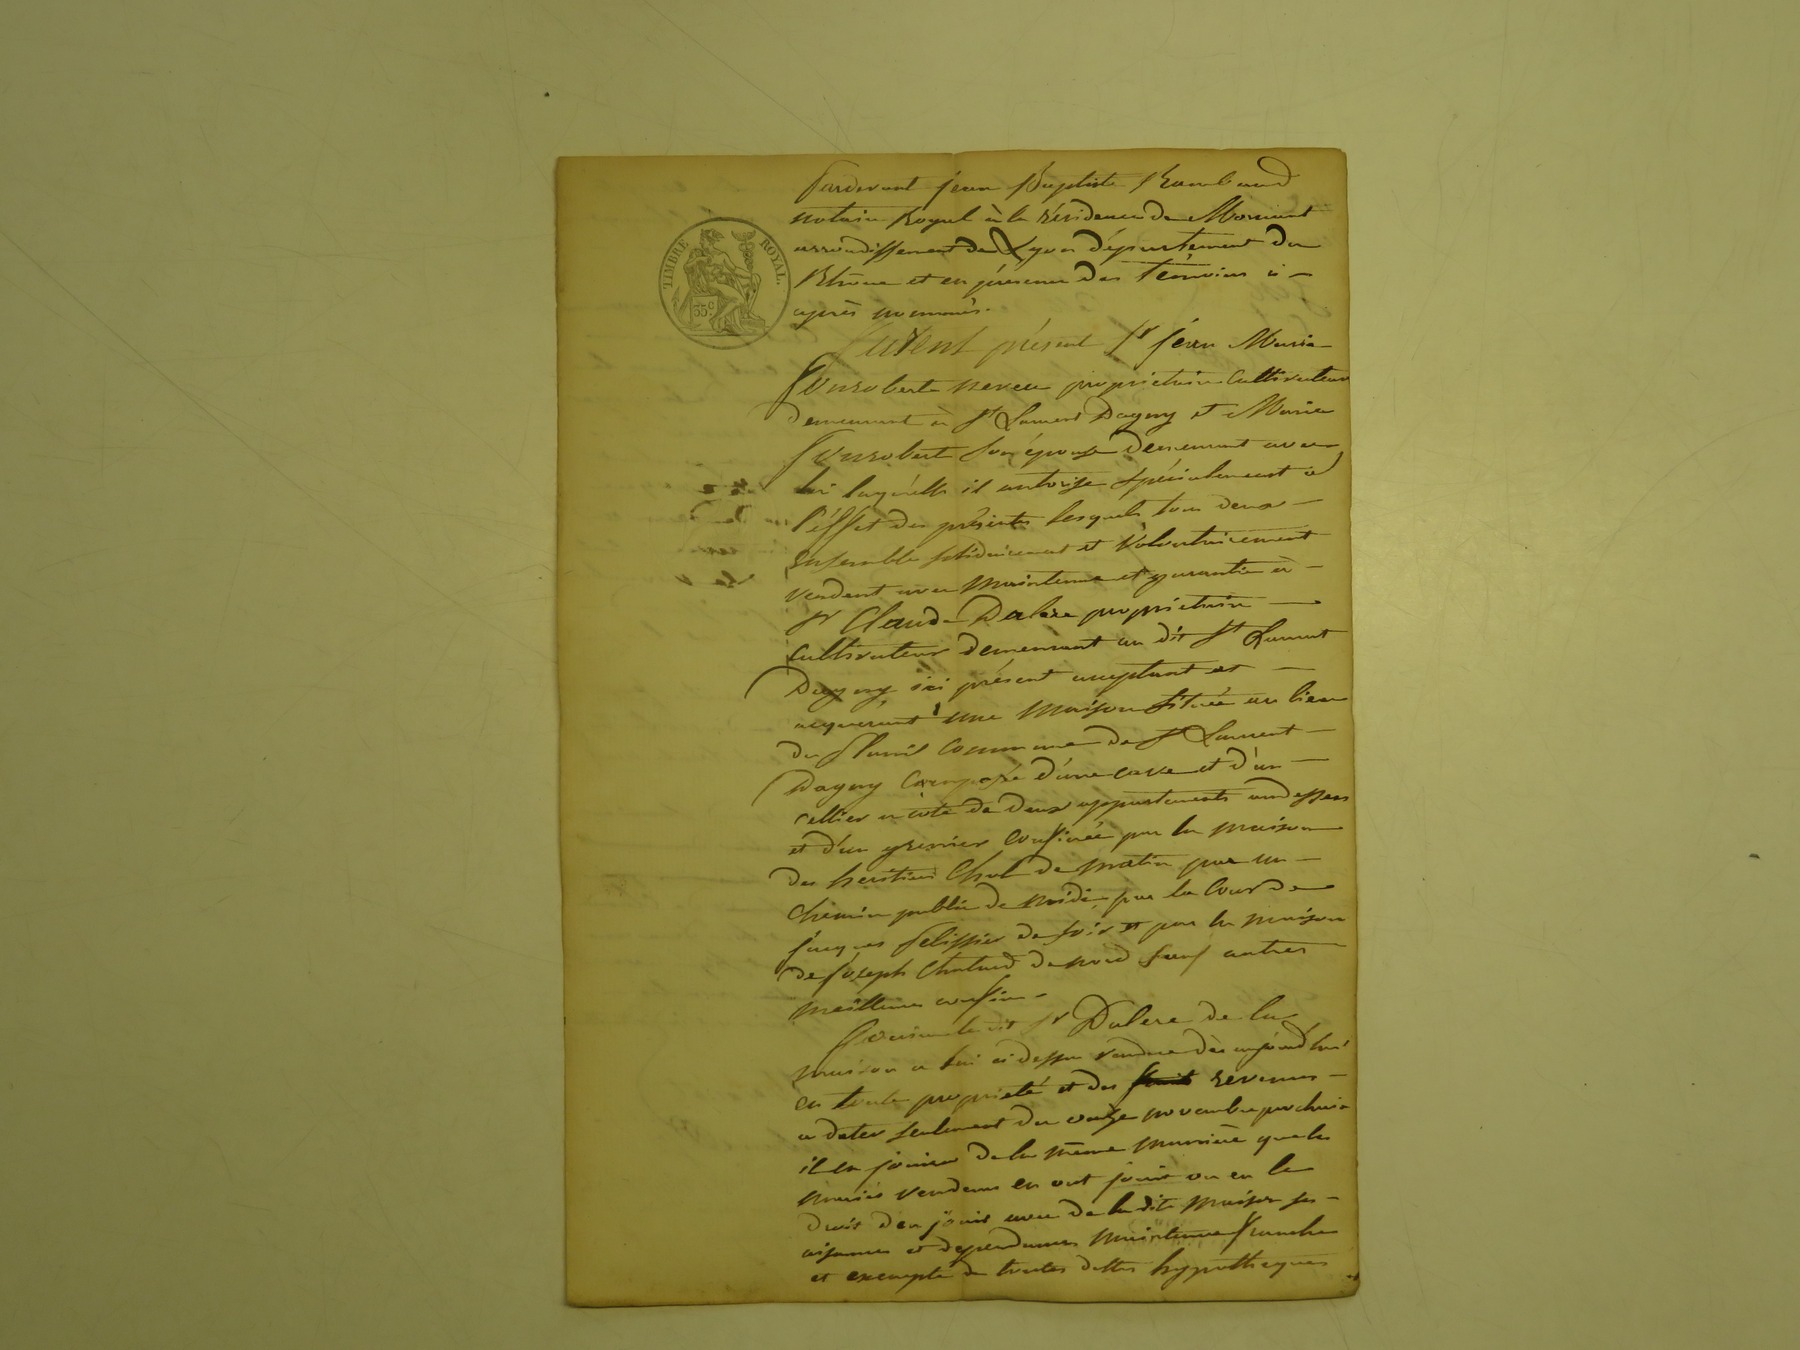 TIMBRE ROYAL.
35 c.
Pardevant jean Baptiste Rambaud
notaire Royal à la résidence de Mornant
arrondissement de Lyon département du
Rhône et en présence des témoins ci
après nommés.
furent présent Sr jean Marie
Gonrobert neveu propriétaire Cultivateur
demeurant à St Laurent Dagny et Marie
Gonrobert son épouse demeurant avec
lui laquelle il autorise spécialement à
l'effet des présentes lesquels tous deux
ensemble solidairement et volontairement
vendent avec maintenue et garantie à
Sr Claude Dalere propriétaire
cultivateur demeurant au dit St Laurent
Dagny ici présent acceptant et
acquerant une maison située au lieu
du commune de St Laurent
Dagny composée d'une cave et d'un
cellier a coté de deux appartements audessus
et d'un grenier confinée par la maison
des heritiers Chol de matin par un
chemin public de midi, par la Cour de
jacques Pelissier de soir et par la maison
de joseph Chatard de nord sauf autres
meilleurs confins.
jouira le dit Sr Dalere de la
maison a lui ci dessus vendue dès aujourd'hui
en toute propriété et des revenus
a dater seulement du onze novembre prochain
il en jouira de la même manière que les
mariés vendeurs en ont jouit ou eu le
droit d'en jouir avec de la dite maison ses
aisances et dependances maintenue franche
et exempte de toutes dettes hypotheques